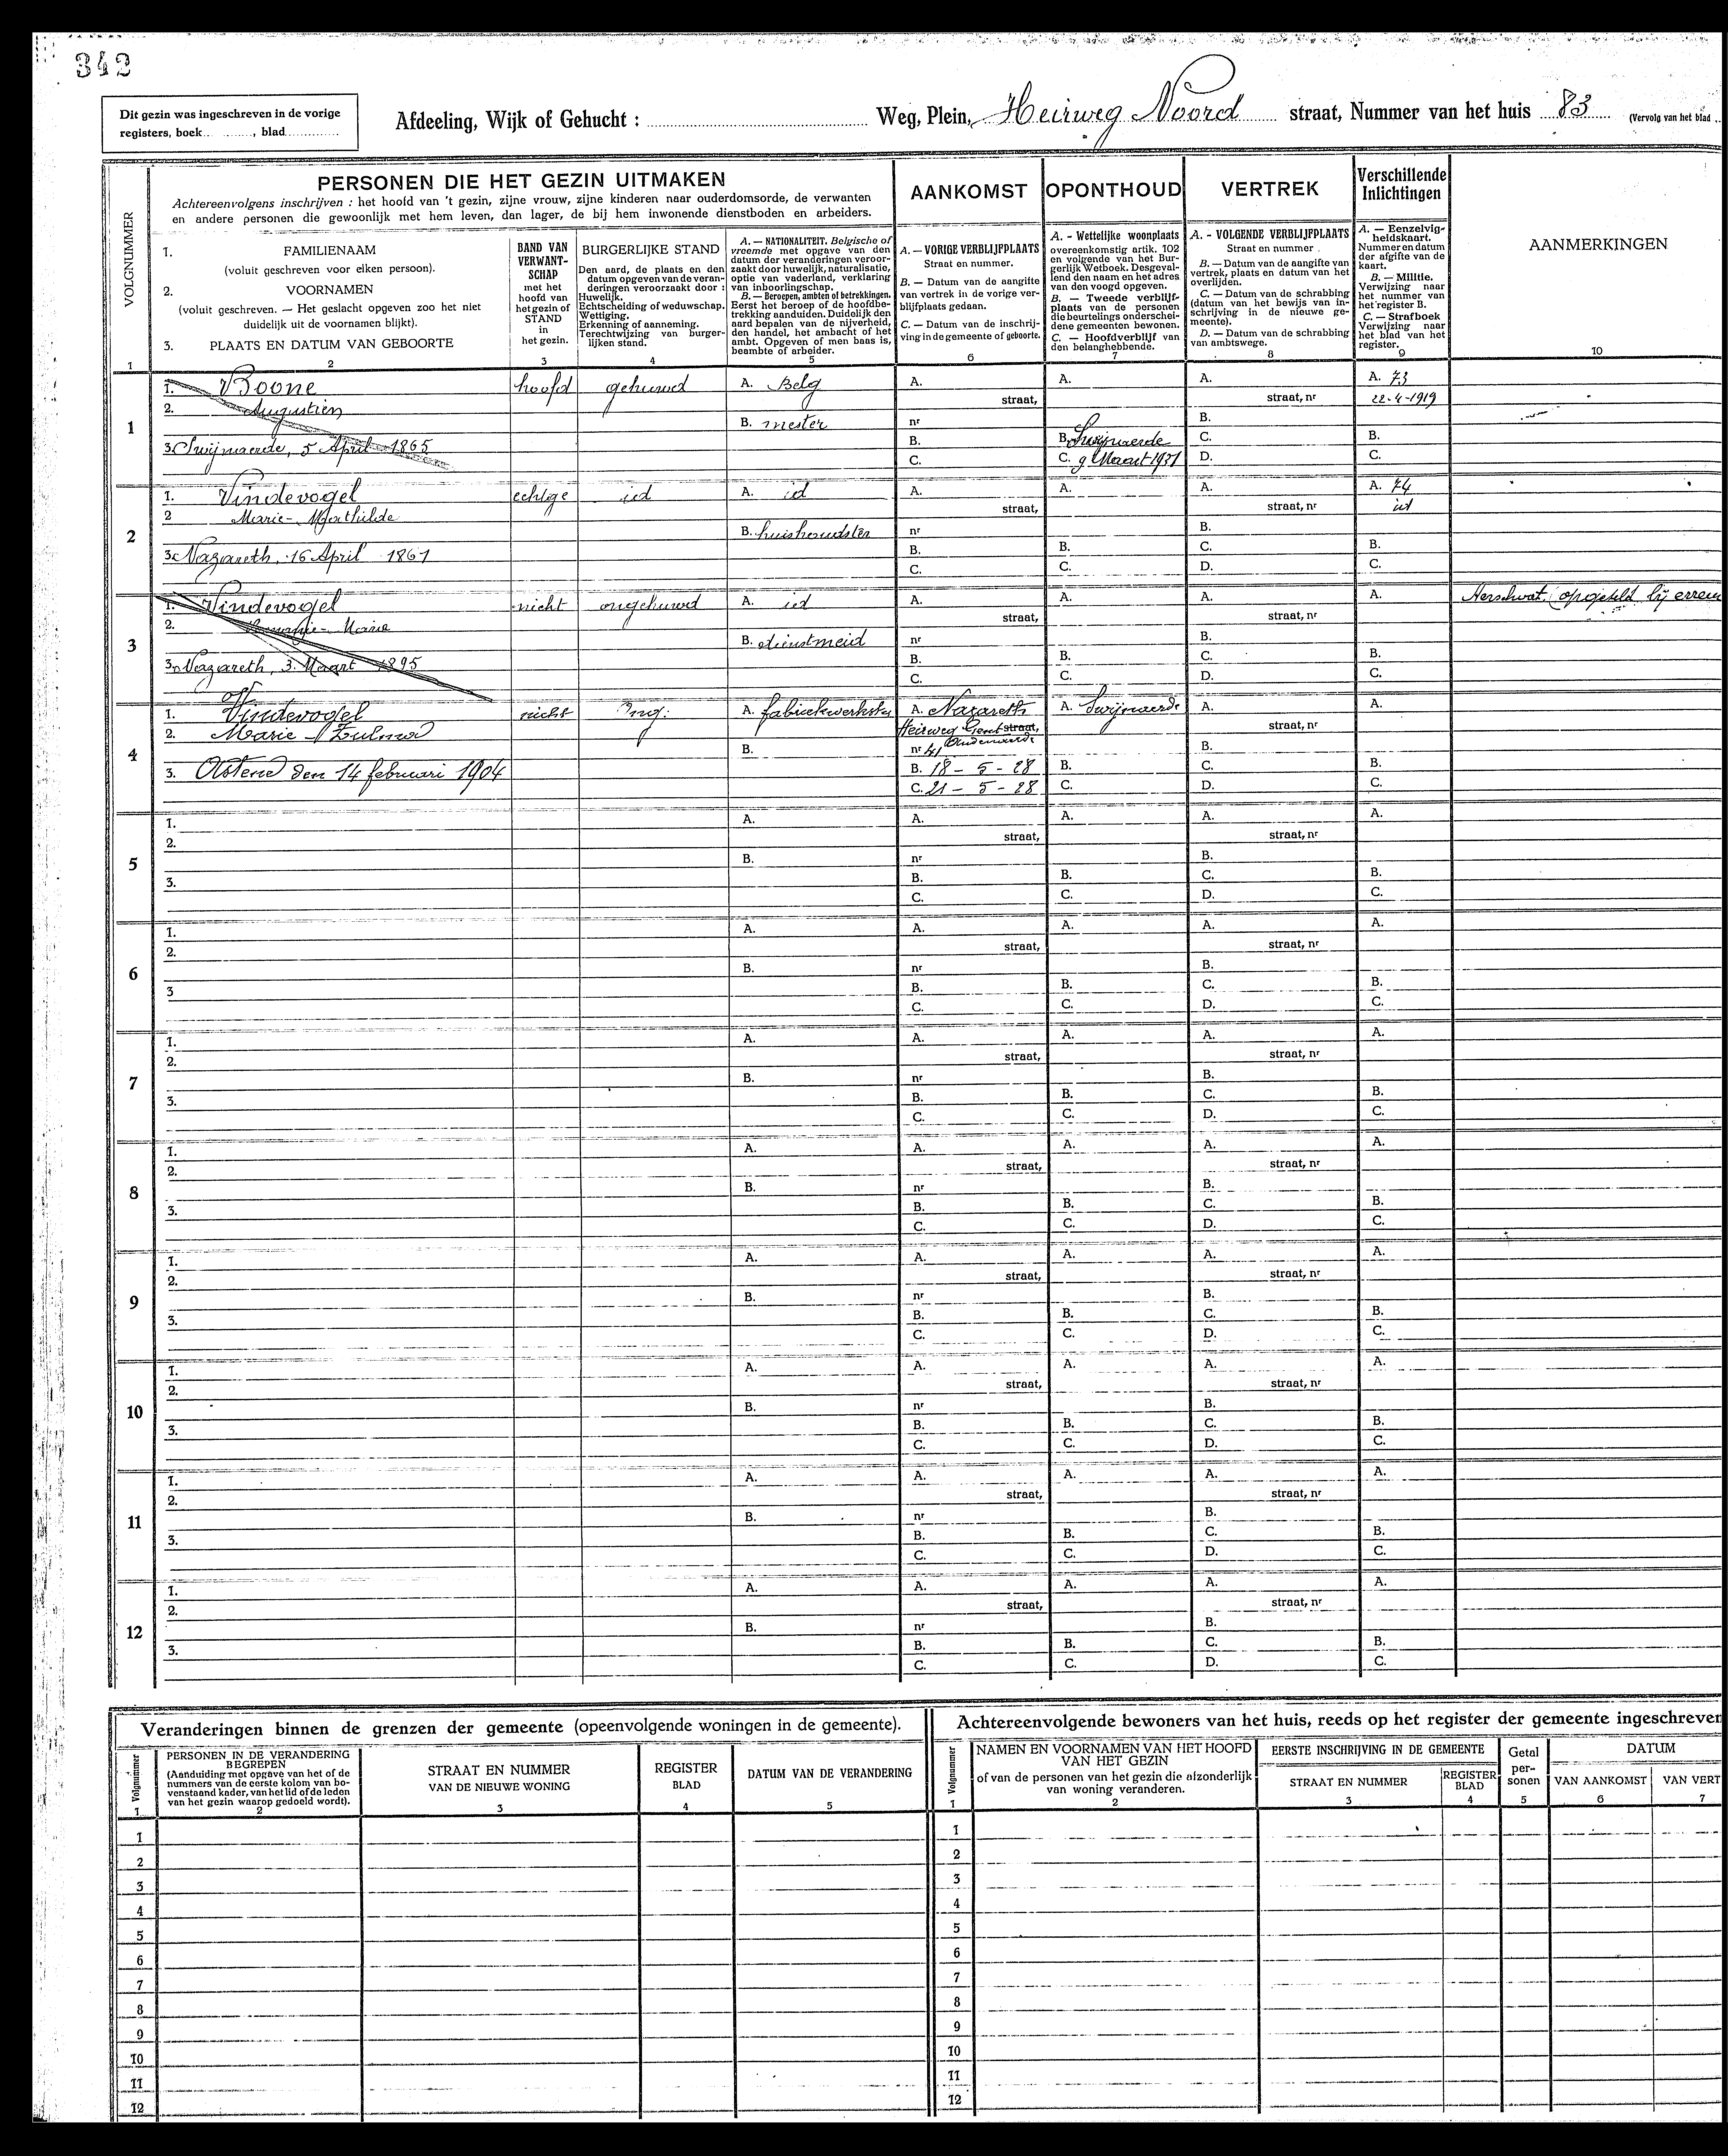 342
Dit gezin was ingeschreven in de vorige
registers, boek............, blad............
Afdeeling, Wijk of Gehucht : ............ Weg, Plein, Heirweg Noord straat, Nummer van het huis 83 (Vervolg van het blad
VOLGNUMMER
PERSONEN DIE HET GEZIN UITMAKEN
Achtereenvolgens inschrijven : het hoofd van 't gezin, zijne vrouw, zijne kinderen naar ouderdomsorde, de verwanten
en andere personen die gewoonlijk met hem leven, dan lager, de bij hem inwonende dienstboden en arbeiders.
1. FAMILIENAAM
(voluit geschreven voor elken persoon).
2. VOORNAMEN
(voluit geschreven. — Het geslacht opgeven zoo het niet
duidelijk uit de voornamen blijkt).
3. PLAATS EN DATUM VAN GEBOORTE
BAND VAN
VERWANT-
SCHAP
met het
hoofd van
het gezin of
STAND
in
het gezin.
BURGERLIJKE STAND
Den aard, de plaats en den
datum opgeven van de veran-
deringen veroorzaakt door :
Huwelijk.
Echtscheiding of weduwschap.
Wettiging.
Erkenning of aanneming.
Terechtwijzing van burger-
lijken stand.
A. — NATIONALITEIT. Belgische of
vreemde met opgave van den
datum der veranderingen veroor-
zaakt door huwelijk, naturalisatie,
optie van vaderland, verklaring
van inboorlingschap.
B. — Beroepen, ambten of betrekkingen.
Eerst het beroep of de hoofdbe-
trekking aanduiden. Duidelijk den
aard bepalen van de nijverheid,
den handel, het ambacht of het
ambt. Opgeven of men baas is,
beambte of arbeider.
AANKOMST
A. — VORIGE VERBLIJFPLAATS
Straat en nummer.
B. — Datum van de aangifte
van vertrek in de vorige ver-
blijfplaats gedaan.
C. — Datum van de inschrij-
ving in de gemeente of geboorte.
OPONTHOUD
A. - Wettelijke woonplaats
overeenkomstig artik. 102
en volgende van het Bur-
gerlijk Wetboek. Desgeval-
lend den naam en het adres
van den voogd opgeven.
B. — Tweede verblijf-
plaats van de personen
die beurtelings onderschei-
dene gemeenten bewonen.
C. — Hoofdverblijf van
den belanghebbende.
VERTREK
A. - VOLGENDE VERBLIJFPLAATS
Straat en nummer
B. — Datum van de aangifte van
vertrek, plaats en datum van het
overlijden.
C. — Datum van de schrabbing
(datum van het bewijs van in-
schrijving in de nieuwe ge-
meente).
D. — Datum van de schrabbing
van ambtswege.
Verschillende
Inlichtingen
A. — Eenzelvig-
heidskaart.
Nummer en datum
der afgifte van de
kaart.
B. — Militie.
Verwijzing naar
het nummer van
het register B.
C. — Strafboek
Verwijzing naar
het blad van het
register.
AANMERKINGEN
1 2 3 4 5 6 7 8 9 10
1
1. Boone hoofd gehuwd A. Belg A. A. A. A. 73
2. Augustien straat, straat, nr 22-4-1919
B. mester nr B.
3. Swijnaerde, 5 April 1865 B. B. Swijnaerde C. B.
C. C. 9 Maart 1931 D. C.
2
1. Vindevogel echtge id A. id A. A. A. A. 74
2 Marie-Mathilde straat, straat, nr id
B. huishoudster nr B.
3. Nazareth, 16 April 1861 B. B. C. B.
C. C. D. C.
3
1. Vindevogel nicht ongehuwd A. id A. A. A. A. opgesteld bij
2. Marie straat, straat, nr
B. dienstmeid nr B.
3. Nazareth, 3 Maart 1895 B. B. C. B.
C. C. D. C.
4
1. Vindevogel nicht Ong: A. fabriekwerkster A. Nazareth A. Swijnaerde A. A.
2. Marie-Zulma Heirweg Gent straat, straat, nr
B. nr 41 Oudenaarde B.
3. Ostend den 14 februari 1904 B. 18 - 5 - 28 B. C. B.
C. 21 - 5 - 28 C. D. C.
5
1. A. A. A. A. A.
2. straat, straat, nr
B. nr B.
3. B. B. C. B.
C. C. D. C.
6
1. A. A. A. A. A.
2. straat, straat, nr
B. nr B.
3 B. B. C. B.
C. C. D. C.
7
1. A. A. A. A. A.
2. straat, straat, nr
B. nr B.
3. B. B. C. B.
C. C. D. C.
8
1. A. A. A. A. A.
2. straat, straat, nr
B. nr B.
3. B. B. C. B.
C. C. D. C.
9
1. A. A. A. A. A.
2. straat, straat, nr
B. nr B.
3. B. B. C. B.
C. C. D. C.
10
1. A. A. A. A. A.
2. straat, straat, nr
B. nr B.
3. B. B. C. B.
C. C. D. C.
11
1. A. A. A. A. A.
2. straat, straat, nr
B. nr B.
3. B. B. C. B.
C. C. D. C.
12
1. A. A. A. A. A.
2. straat, straat, nr
B. nr B.
3. B. B. C. B.
C. C. D. C.
Veranderingen binnen de grenzen der gemeente (opeenvolgende woningen in de gemeente).
Volgnummer
PERSONEN IN DE VERANDERING
BEGREPEN
(Aanduiding met opgave van het of de
nummers van de eerste kolom van bo-
venstaand kader, van het lid of de leden
van het gezin waarop gedoeld wordt).
STRAAT EN NUMMER
VAN DE NIEUWE WONING
REGISTER
BLAD
DATUM VAN DE VERANDERING
1 2 3 4 5
1
2
3
4
5
6
7
8
9
10
11
12
Achtereenvolgende bewoners van het huis, reeds op het register der gemeente ingeschreven
Volgnummer
NAMEN EN VOORNAMEN VAN HET HOOFD
VAN HET GEZIN
of van de personen van het gezin die afzonderlijk
van woning veranderen.
EERSTE INSCHRIJVING IN DE GEMEENTE
STRAAT EN NUMMER
REGISTER
BLAD
Getal
per-
sonen
DATUM
VAN AANKOMST
VAN VERT
1 2 3 4 5 6 7
1
2
3
4
5
6
7
8
9
10
11
12